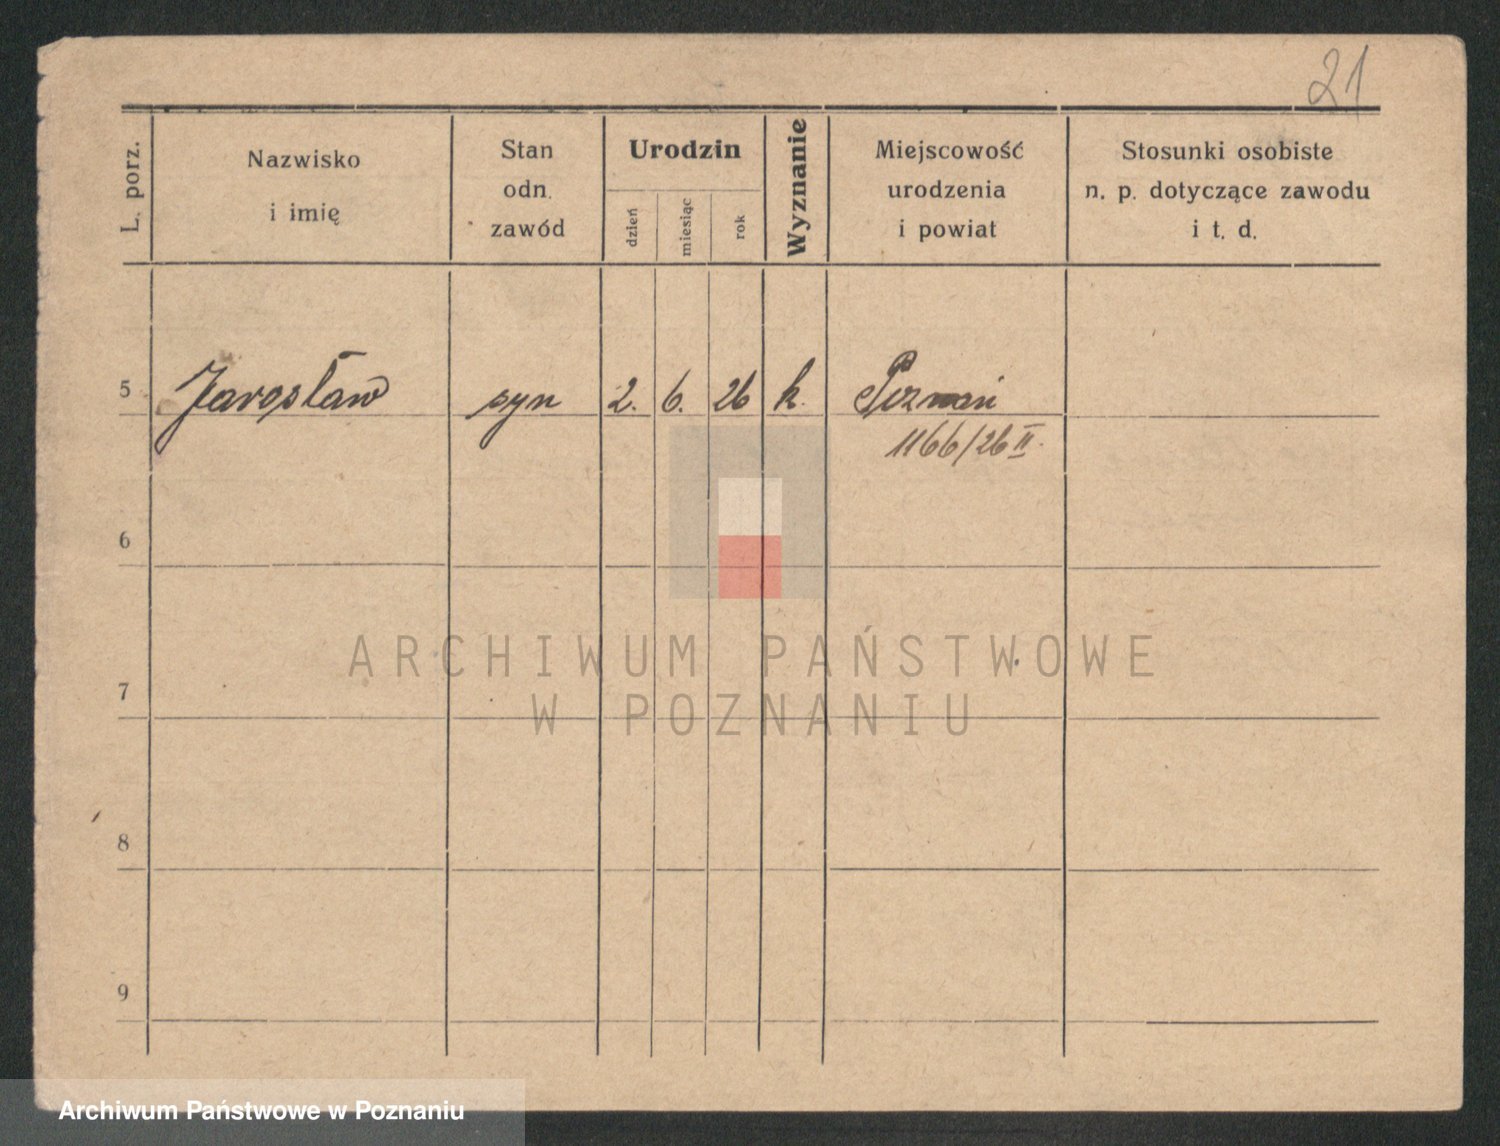 21
L. porz.
Nazwisko
i imię
Stan
odn.
zawód
Urodzin
dzień
miesiąc
rok
Wyznanie
Miejscowość
urodzenia
i powiat
Stosunki osobiste
n. p. dotyczące zawodu
i t. d.
5 Jarosław syn 2. 6. 26 k. Poznań
1166/26 II.
6
7
8
9
ARCHIWUM PAŃSTWOWE
W POZNANIU
Archiwum Państwowe w Poznaniu